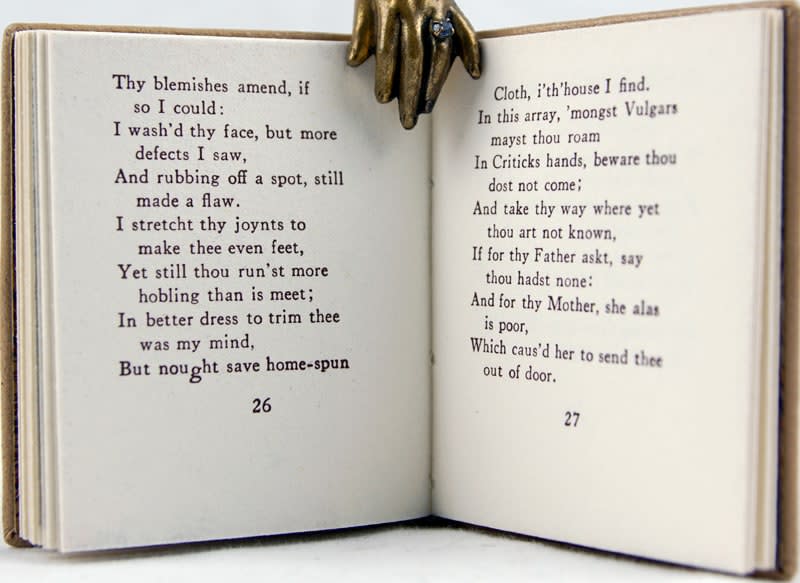 Thy blemishes amend, if
so I could:
I wash'd thy face, but more
defects I saw,
And rubbing off a spot, still
made a flaw.
I stretcht thy joynts to
make thee even feet,
Yet still thou run'st more
hobling than is meet;
In better dress to trim thee
was my mind,
But nought save home-spun
26
Cloth, i'th'house I find.
In this array, 'mongst Vulgars
mayst thou roam
In Criticks hands, beware thou
dost not come;
And take thy way where yet
thou art not known,
If for thy Father askt, say
thou hadst none:
And for thy Mother, she alas
is poor,
Which caus'd her to send thee
out of door.
27